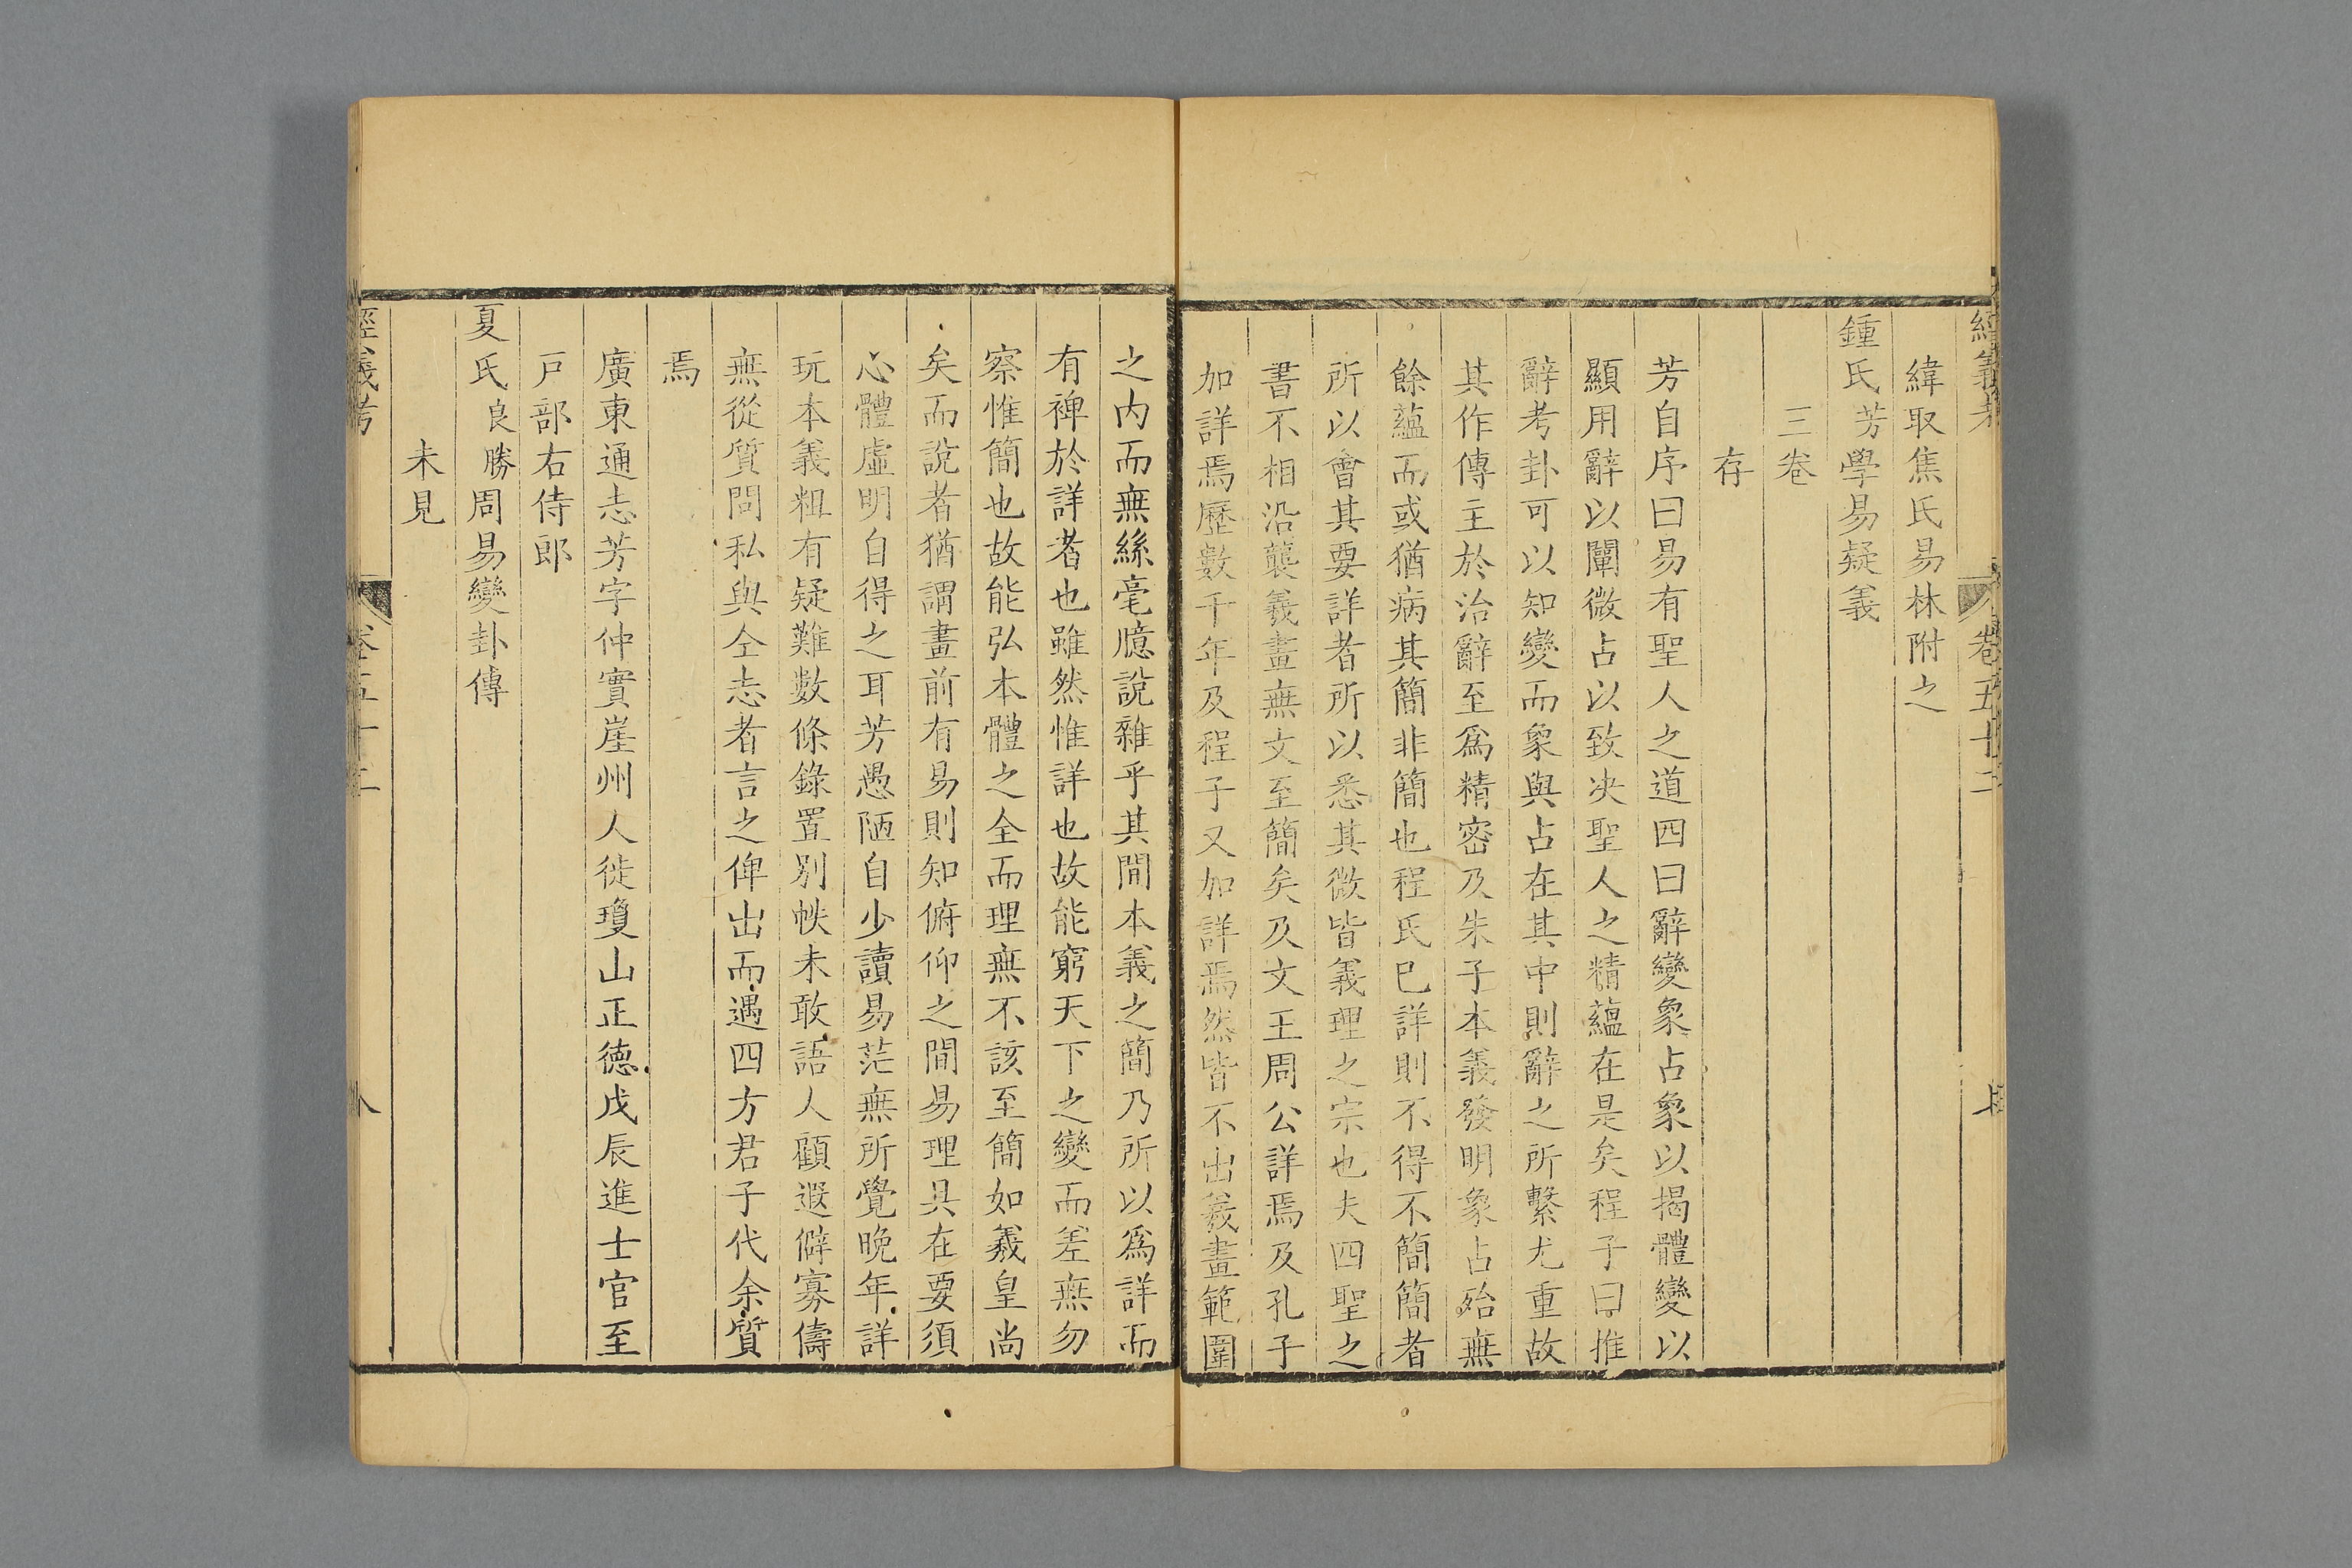 經義考 卷五十二
緯取焦氏易林附之
鍾氏芳學易疑義
三卷
存
芳自序曰易有聖人之道四曰辭變象占象以揭體變以
顯用辭以闡微占以致决聖人之精蘊在是矣程子曰推
辭考卦可以知變而象與占在其中則辭之所繫尤重故
其作傳主於治辭至爲精密及朱子本義發明象占殆無
餘蘊而或猶病其簡非簡也程氏已詳則不得不簡簡者
所以會其要詳者所以悉其微皆義理之宗也夫四聖之
書不相沿襲羲畫無文至簡矣及文王周公詳焉及孔子
加詳焉歷數千年及程子又加詳焉然皆不出羲畫範圍
之内而無絲毫臆說雜乎其間本義之簡乃所以爲詳而
有裨於詳者也雖然惟詳也故能窮天下之變而差無勿
察惟簡也故能弘本體之全而理無不該至簡如羲皇尚
矣而說者猶謂畫前有易則知俯仰之間易理具在要須
心體虛明自得之耳芳愚陋自少讀易茫無所覺晚年詳
玩本義粗有疑難數條錄置别帙未敢語人顧遐僻寡儔
無從質問私與仝志者言之俾出而遇四方君子代余質
焉
廣東通志芳字仲實崖州人徙瓊山正德戊辰進士官至
戸部右侍郎
夏氏良勝周易變卦傳
未見
經義考 卷五十二 八